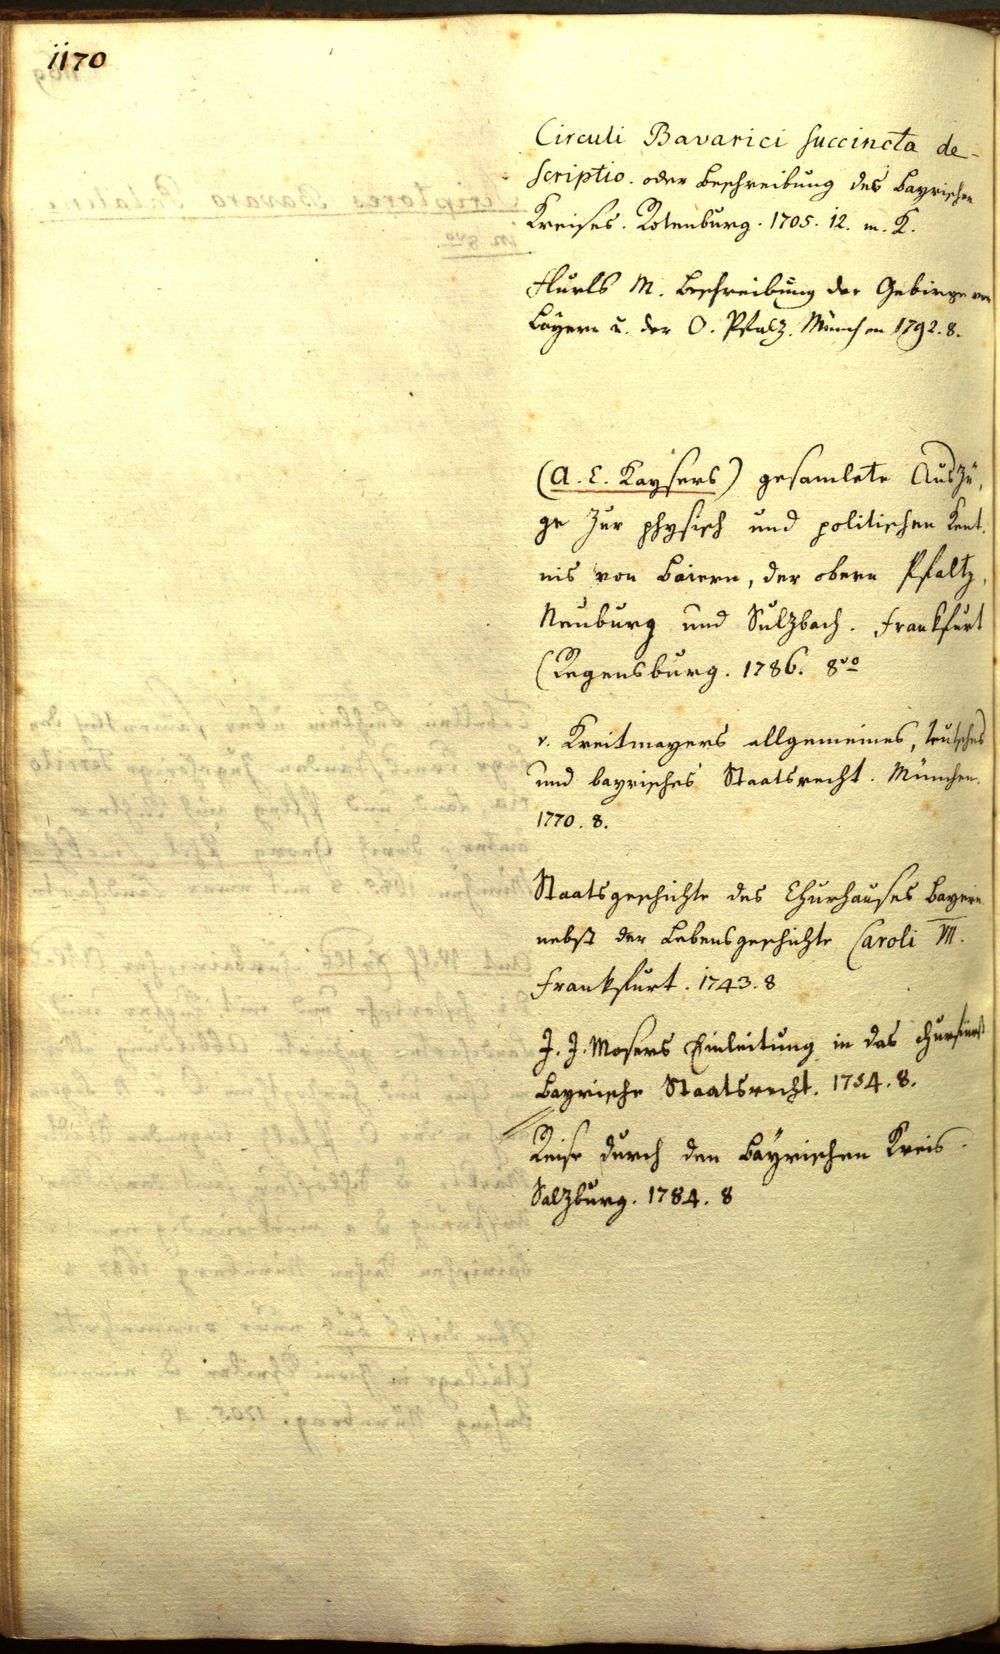 1170
Circuli Bavarici succincta de-
scriptio. oder Beschreibung des Bayrischen
Kreises. Rotenburg. 1705. 12. m. K.
Flurls M. Beschreibung der Gebirge von
Bayern u. der O. Pfalz. München 1792. 8.
(A. E. Kaysers) gesamlete Auszü,
ge zur physisch und politischen Kent,
nis von Baiern, der obern Pfaltz,
Neuburg und Sulzbach. Frankfurt
(Regensburg. 1786. 8vo
v. Kreitmayers allgemeines, teutsches
und bayrisches Staatsrecht. München.
1770. 8.
Staatsgeschichte des Churhauses Bayern
nebst der Lebensgeschichte Caroli VII.
Frankfurt. 1743. 8
J. J. Mosers Einleitung in das churfürst
Bayrische Staatsrecht. 1754. 8.
Reise durch den Bayrischen Kreis.
Salzburg. 1784. 8